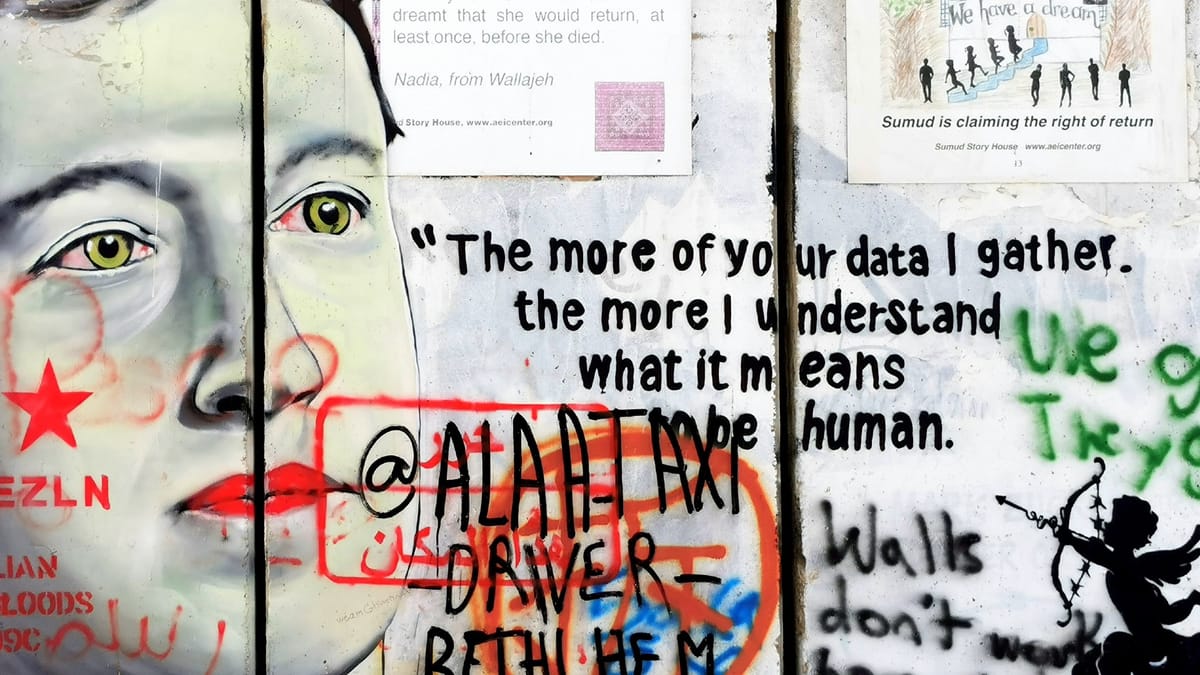 dreamt that she would return, at
least once, before she died.
Nadia, from Wallajeh
d Story House, www.aeicenter.org
We have a dream
Sumud is claiming the right of return
Sumud Story House www.aeicenter.org
13
"The more of your data I gather.
the more I understand
what it means
to be human.
We g
They g
@ALAA TAXI
-DRIVER-
BETHLHEM
Walls
don't work
EZLN
LIAN
LOODS